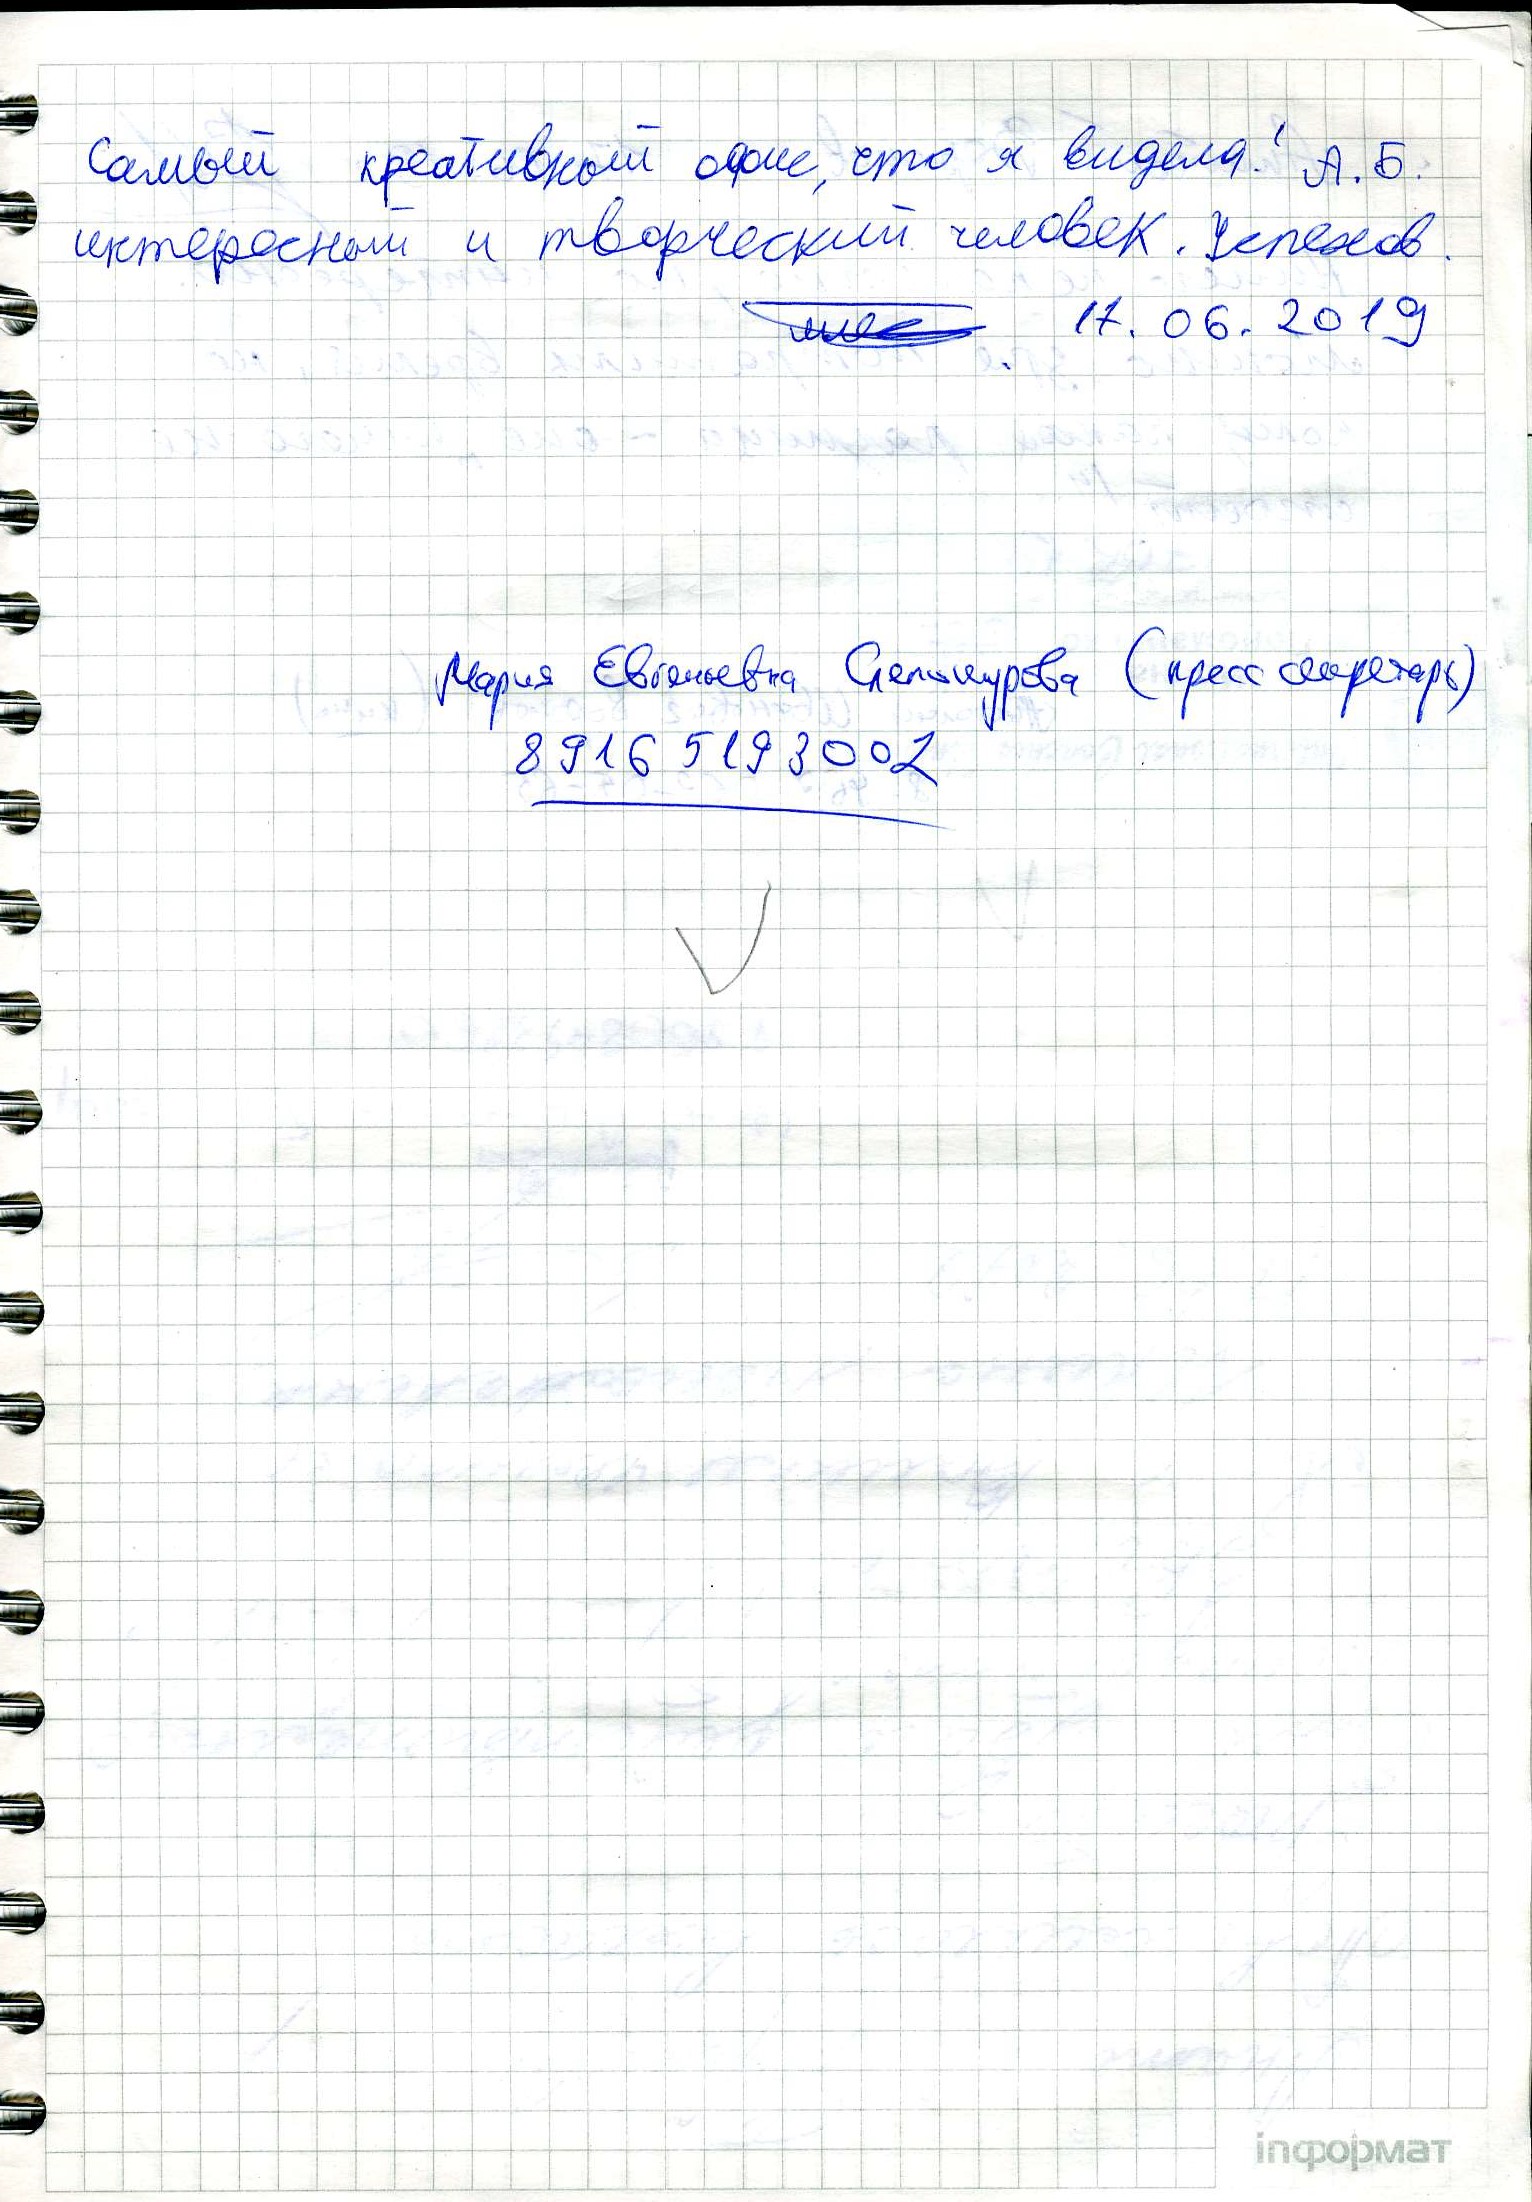 Самый креативный офис, что я видела! А.Б.
интересный и творческий человек. Успехов.
17.06.2019
Мария Евгеньевна (пресс секретарь)
89165193002
inформат